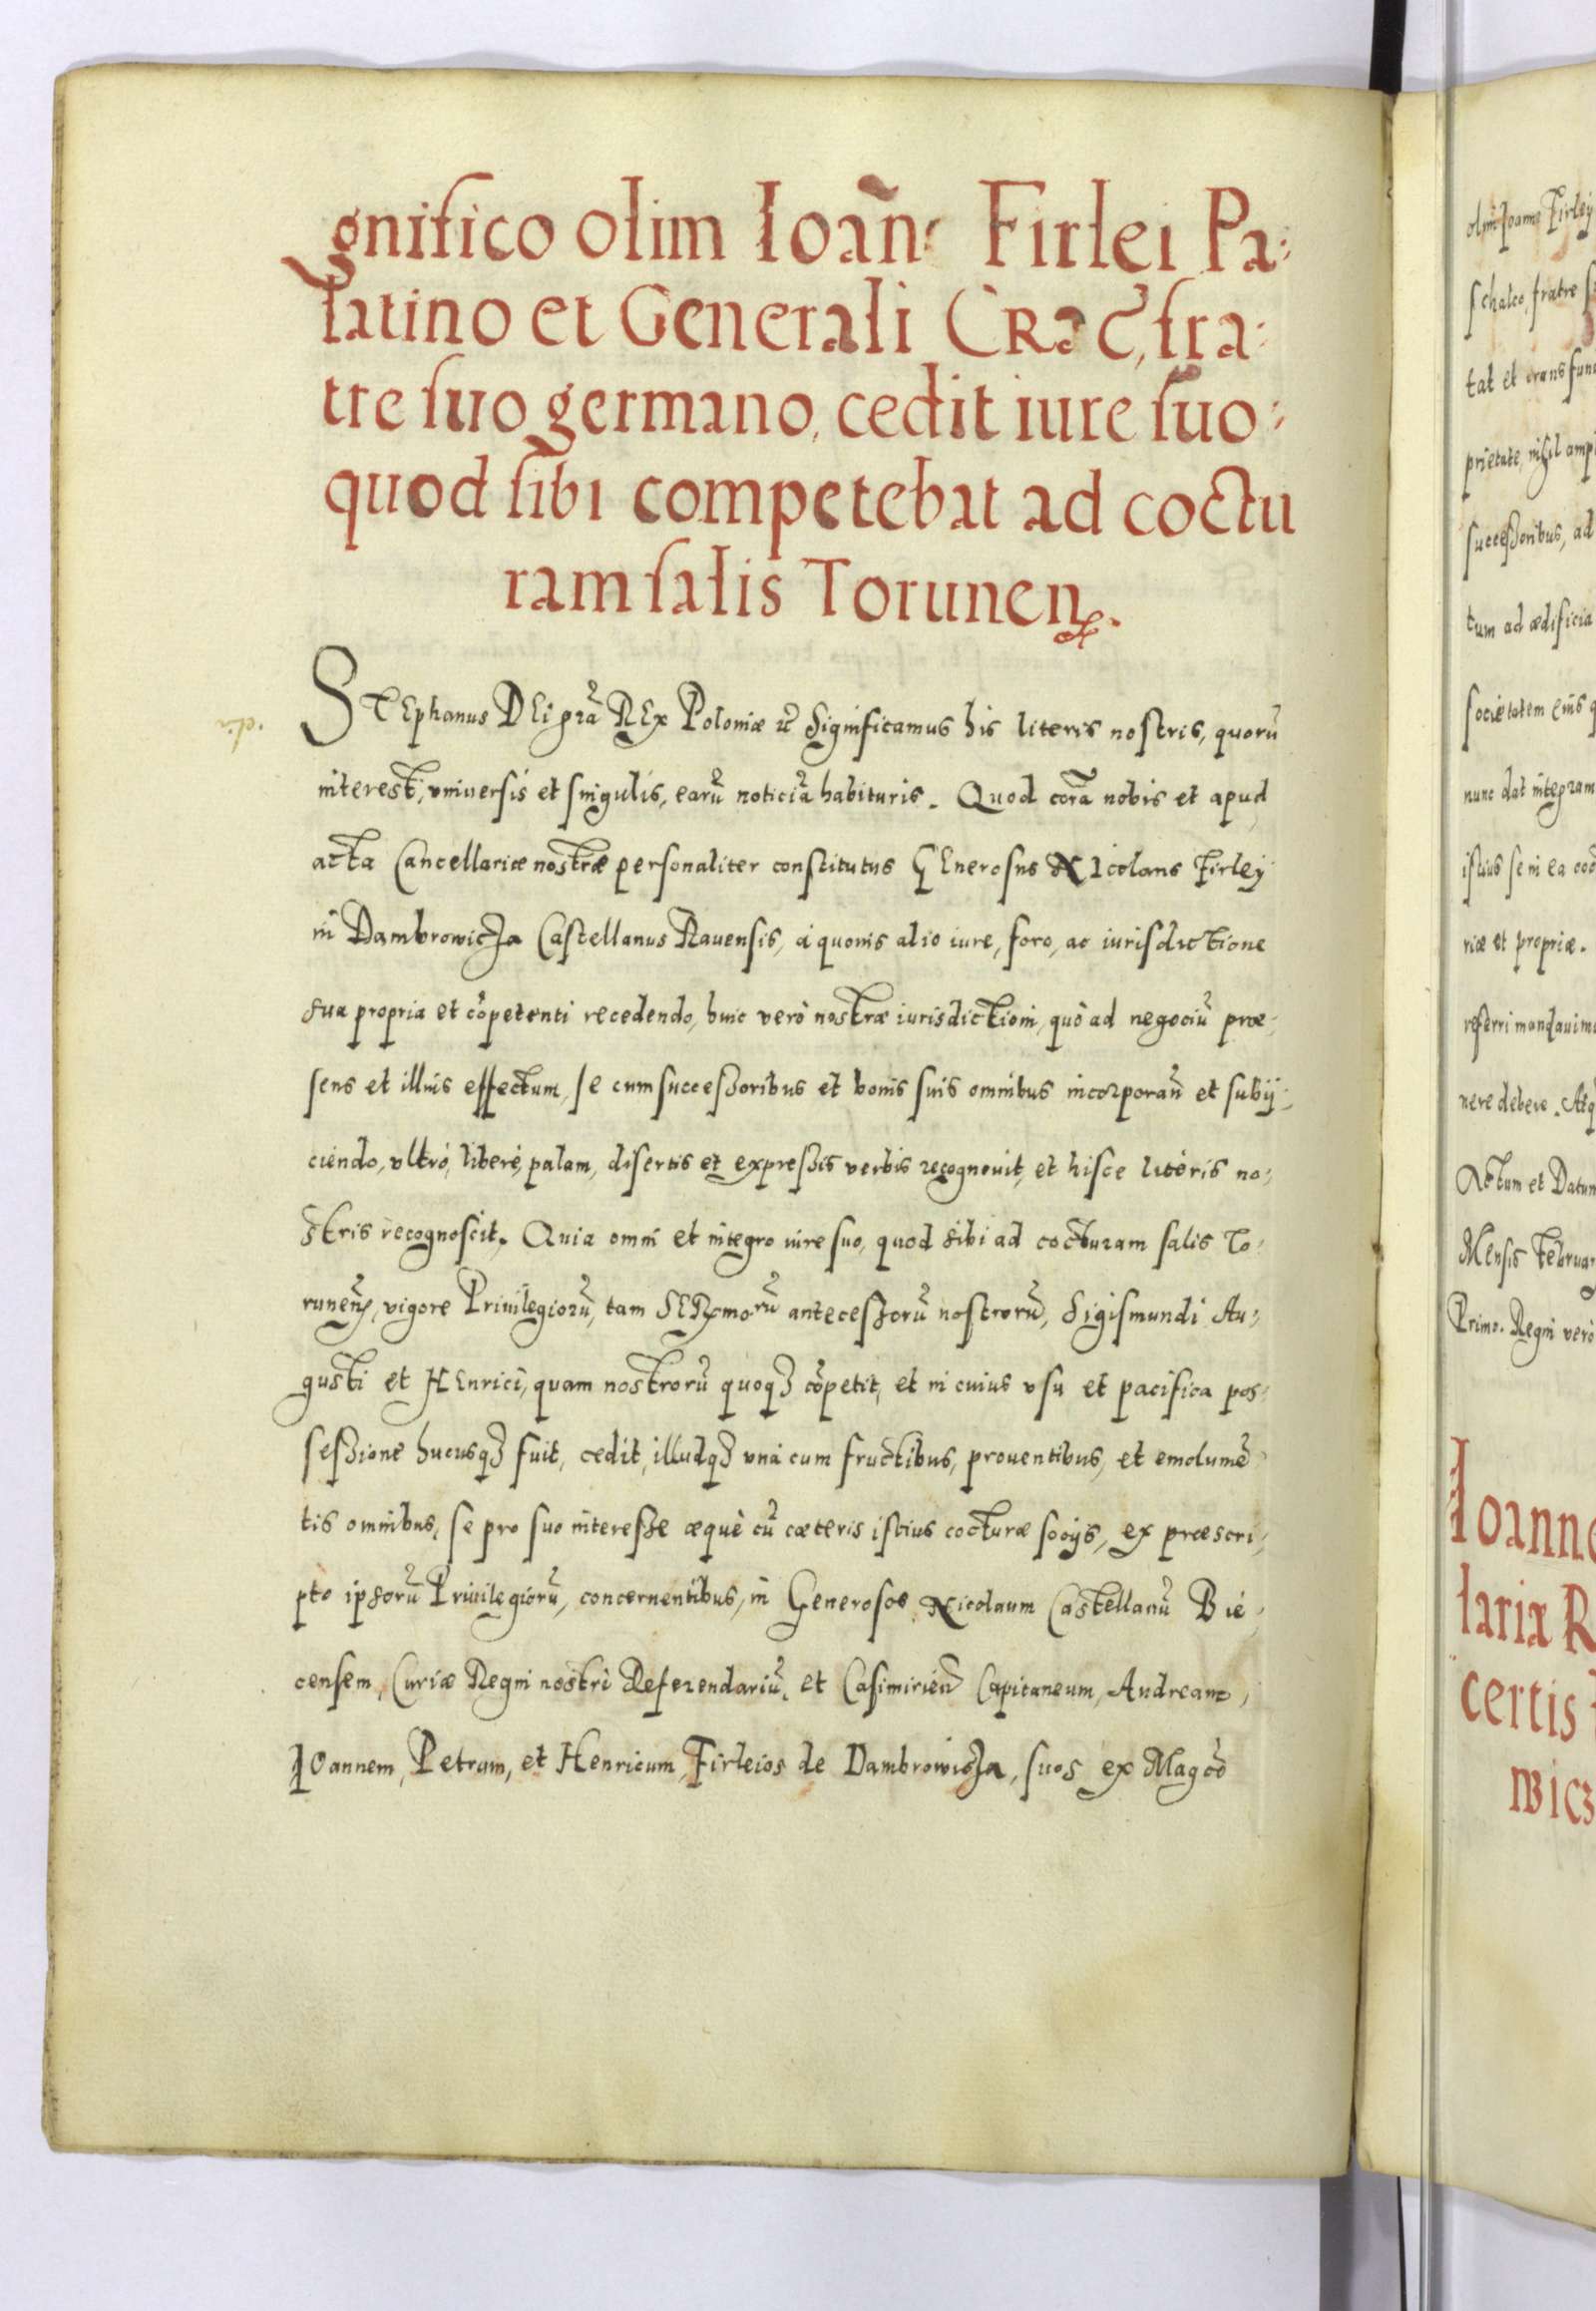 gnifico olim Ioañ Firlei Pa:
latino et Generali Crac, fra:
tre suo germano, cedit iure suo:
quod sibi competebat ad coctu
ram salis Torunen.
Stephanus Dei gra Rex Poloniæ &c Significamus his literis nostris, quorũ
interest, vniuersis et singulis, earũ noticiã habituris. Quod corã nobis et apud
acta Cancellariæ nostræ personaliter constitutus Generosus Nicolaus Firley
in Dambrowicza Castellanus Rauensis, à quouis alio iure, foro, ac iurisdictione
sua propria et cõpetenti recedendo, huic verò nostræ iurisdictioni, quò ad negociũ præ:
sens et illius effectum, se cum successoribus et bonis suis omnibus incorporañ et subij:
ciendo, vltrò, liberè, palam, disertis et expressis verbis recognouit, et hisce literis no:
stris recognoscit. Quia omni et integro iure suo, quod sibi ad cocturam salis To:
runeñ, vigore Priuilegiorũ, tam SERmorũ antecessorũ nostrorũ, Sigismundi Au:
gusti et Henrici, quam nostrorũ quoq3 cõpetit, et in cuius vsu et pacifica pos:
sessione hucusq3 fuit, cedit, illudq3 vnà cum fructibus, prouentibus, et emolumẽ
tis omnibus, se pro suo interesse æquè cũ cæteris istius cocturæ socijs, ex præscri:
pto ipsorũ Priuilegiorũ, concernentibus, in Generosos Nicolaum Castellanũ Bie:
censem, Curiæ Regni nostri Referendariũ, et Casimirieñ Capitaneum, Andream,
Ioannem, Petrum, et Henricum, Firleios de Dambrowicza, suos ex Magco
olim Ioanne Firley
schalco, fratre
tat et transfun
prietate, nihil ampl
successoribus, ad
tum ad ædificia
societatem eius q
nunc dat integram
istius se in ea coc
riæ et propriæ.
referri mandauimu
nere debere. Atq
Actum et Datum
Mensis Februar
Primo. Regni verò
Ioanne
lariæ R
certis